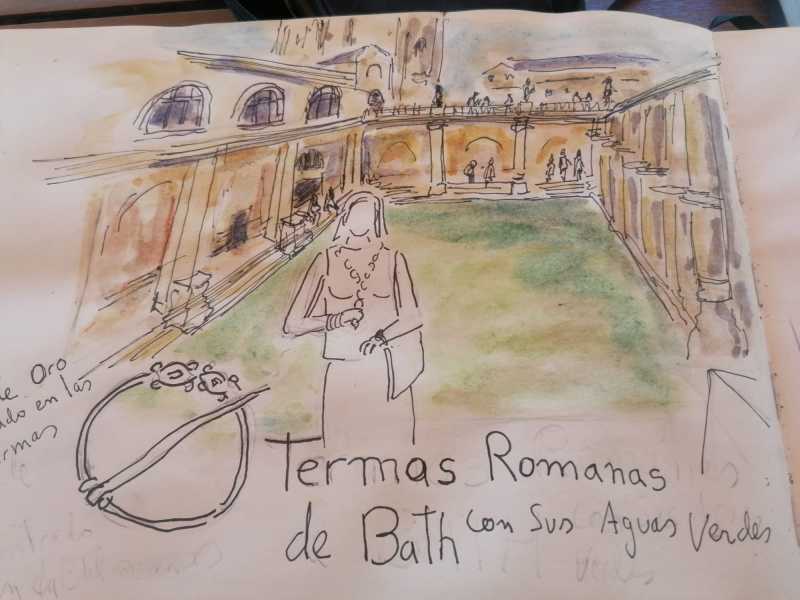 Oro
en las
Termas Romanas
de Bath con sus Aguas Verdes